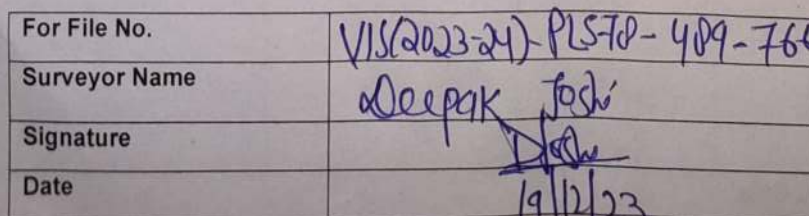 For File No. VIS(2023-24)-PL578-489-766
Surveyor Name Deepak Joshi
Signature DJoshi
Date 19/12/23